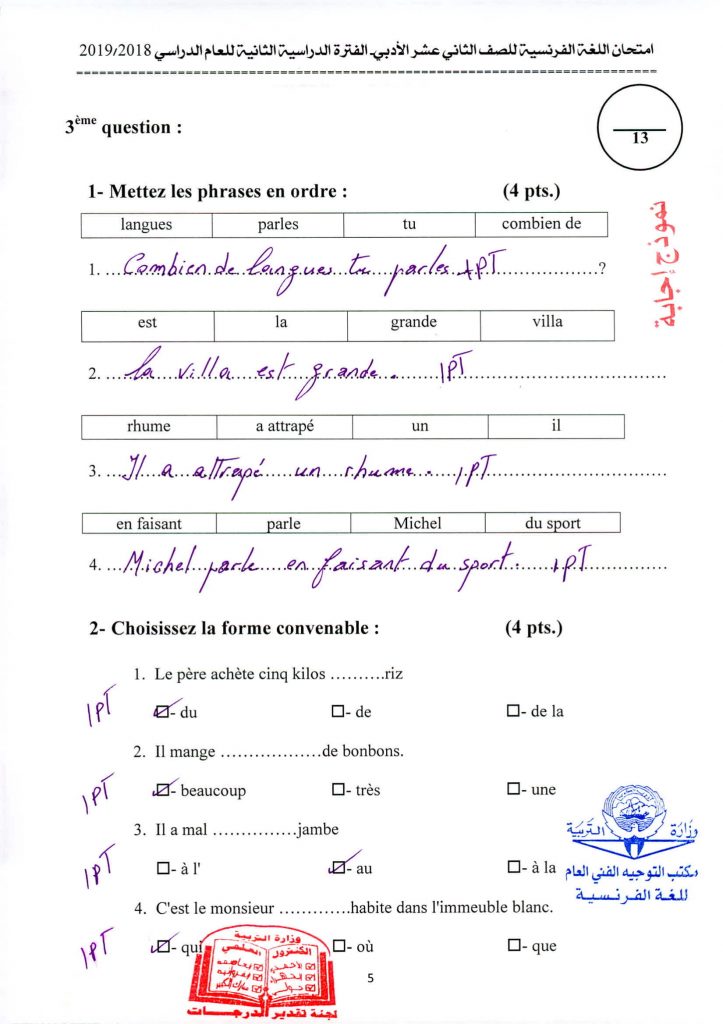 امتحان اللغة الفرنسية للصف الثاني عشر الأدبي- الفترة الدراسية الثانية للعام الدراسي 2019/2018
3ème question :
13
1- Mettez les phrases en ordre : (4 pts.)
نموذج إجابة
langues parles tu combien de
1. ...Combien de langues tu parles 1PT ...?
est la grande villa
2. ...la villa est grande. 1PT
rhume a attrapé un il
3. ...Il a attrapé un rhume. 1PT
en faisant parle Michel du sport
4. ...Michel parle en faisant du sport. 1PT
2- Choisissez la forme convenable : (4 pts.)
1. Le père achète cinq kilos ..........riz
1PT ☑- du ☐- de ☐- de la
2. Il mange ..................de bonbons.
1PT ☑- beaucoup ☐- très ☐- une
3. Il a mal ...............jambe
1PT ☐- à l' ☑- au ☐- à la
4. C'est le monsieur .............habite dans l'immeuble blanc.
1PT ☑- qui ☐- où ☐- que
وزارة التربية
مكتب التوجيه الفني العام
للغة الفرنسية
وزارة التربية
الكنترول العلمي
لجنة تقدير الدرجات
5